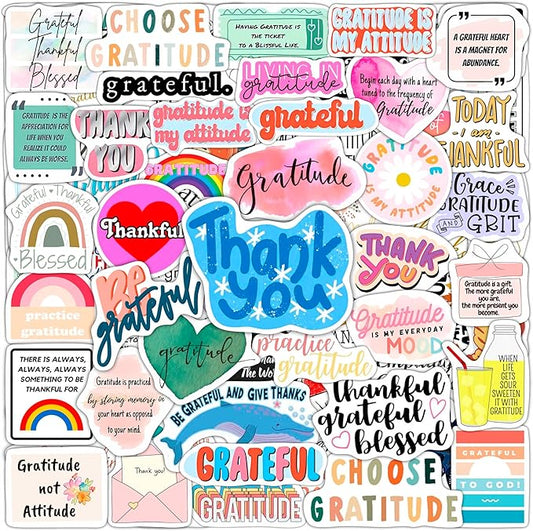 Grateful
Thankful
Blessed
CHOOSE
GRATITUDE
HAVING GRATITUDE IS
THE TICKET
TO A BLISSFUL LIFE.
GRATITUDE IS
MY ATTITUDE
A GRATEFUL HEART
IS A MAGNET FOR
ABUNDANCE.
grateful.
LIVING IN
gratitude
Begin each day with a heart
tuned to the frequency of
Gratitude
GRATITUDE IS THE
APPRECIATION FOR
LIFE WHEN YOU
REALIZE IT COULD
ALWAYS BE WORSE.
THANK
YOU
gratitude is
my attitude
grateful
TODAY
I am
THANKFUL
GRATITUDE
Gratitude
GRATITUDE
IS MY ATTITUDE
Grace
GRATITUDE
AND GRIT
Grateful Thankful
Blessed
Thankful
Thank
you
THANK
YOU
Gratitude is a gift.
The more grateful
you are,
the more present you
become.
Be
grateful
practice
gratitude
Gratitude
IS MY EVERYDAY
MOOD
gratitude
practice
gratitude
THERE IS ALWAYS,
ALWAYS, ALWAYS
SOMETHING TO BE
THANKFUL FOR
Gratitude is practiced
by storing memory in
your heart as opposed
to your mind.
BE GRATEFUL AND GIVE THANKS
Thankful
grateful
blessed
WHEN
LIFE
GETS
SOUR
SWEETEN
IT WITH
GRATITUDE
Gratitude
not
Attitude
Thank you!
GRATEFUL
GRATITUDE
CHOOSE
GRATITUDE
GRATEFUL
TO GOD!